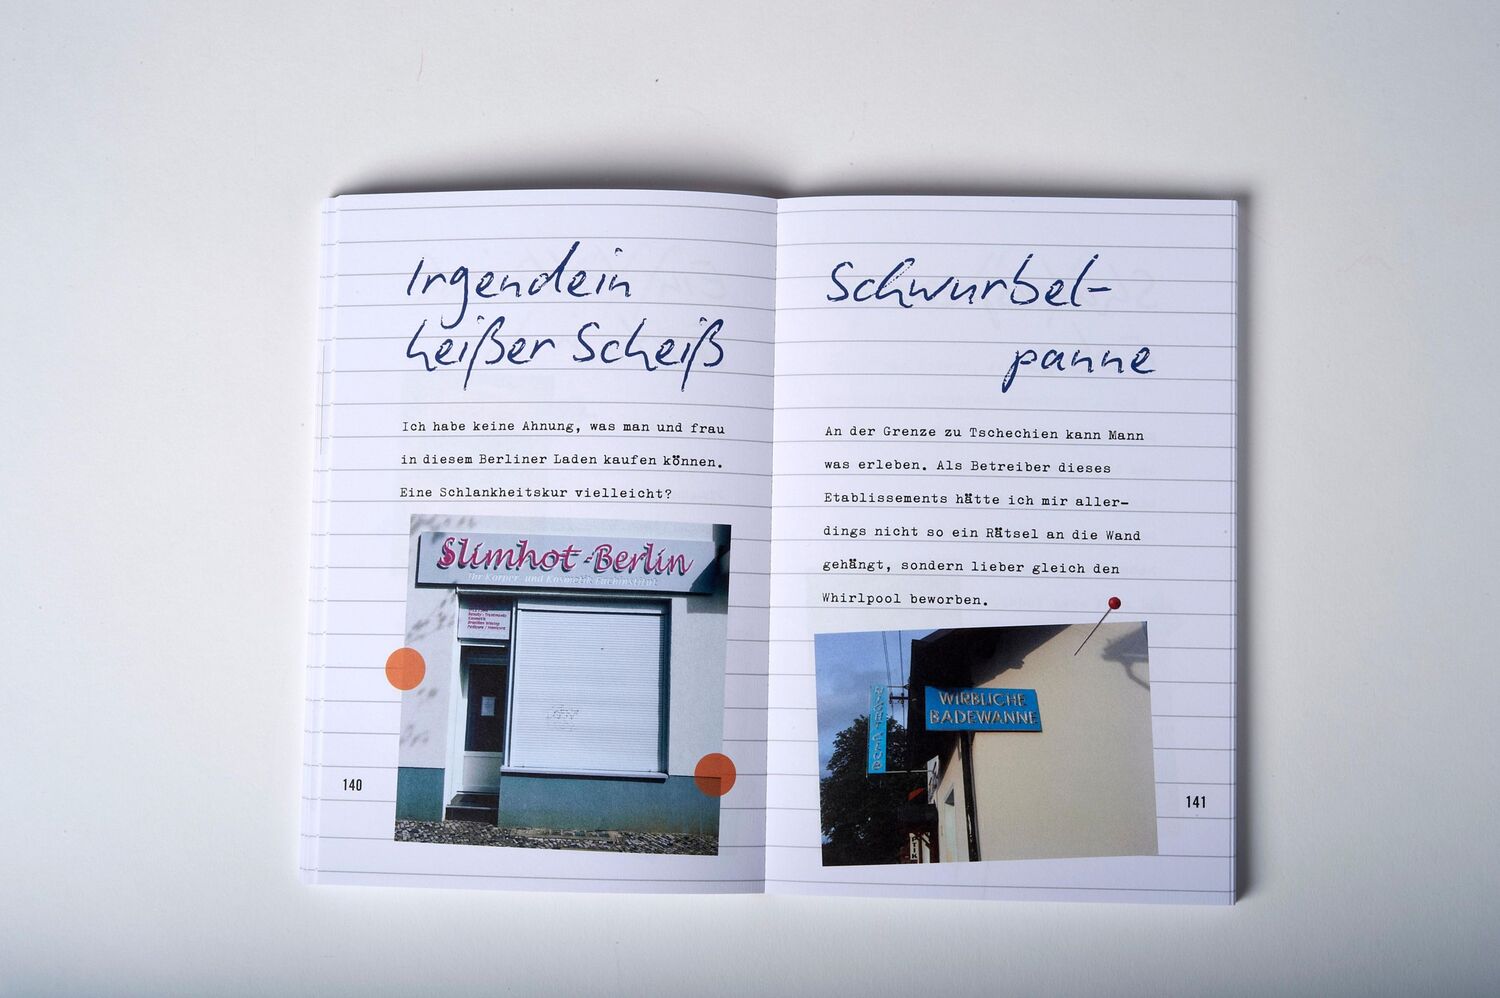 Irgendein
heißer Scheiß
Ich habe keine Ahnung, was man und frau
in diesem Berliner Laden kaufen können.
Eine Schlankheitskur vielleicht?
Slimhot-Berlin
Ihr Körper- und Kosmetik Fachinstitut
140
Schwurbel-
panne
An der Grenze zu Tschechien kann Mann
was erleben. Als Betreiber dieses
Etablissements hätte ich mir aller-
dings nicht so ein Rätsel an die Wand
gehängt, sondern lieber gleich den
Whirlpool beworben.
WIRBLICHE
BADEWANNE
NIGHT CLUB
141